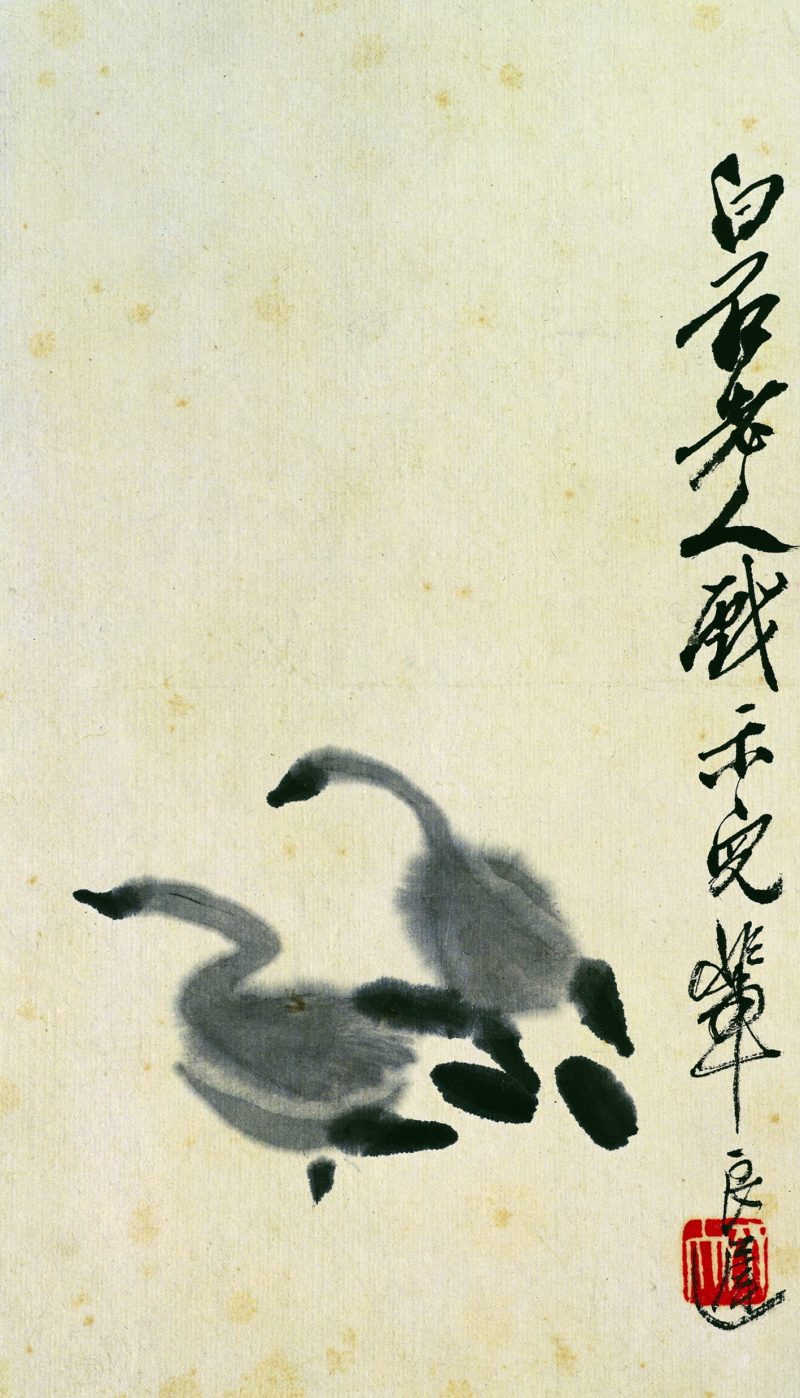 白石老人戲示兒輩良遲